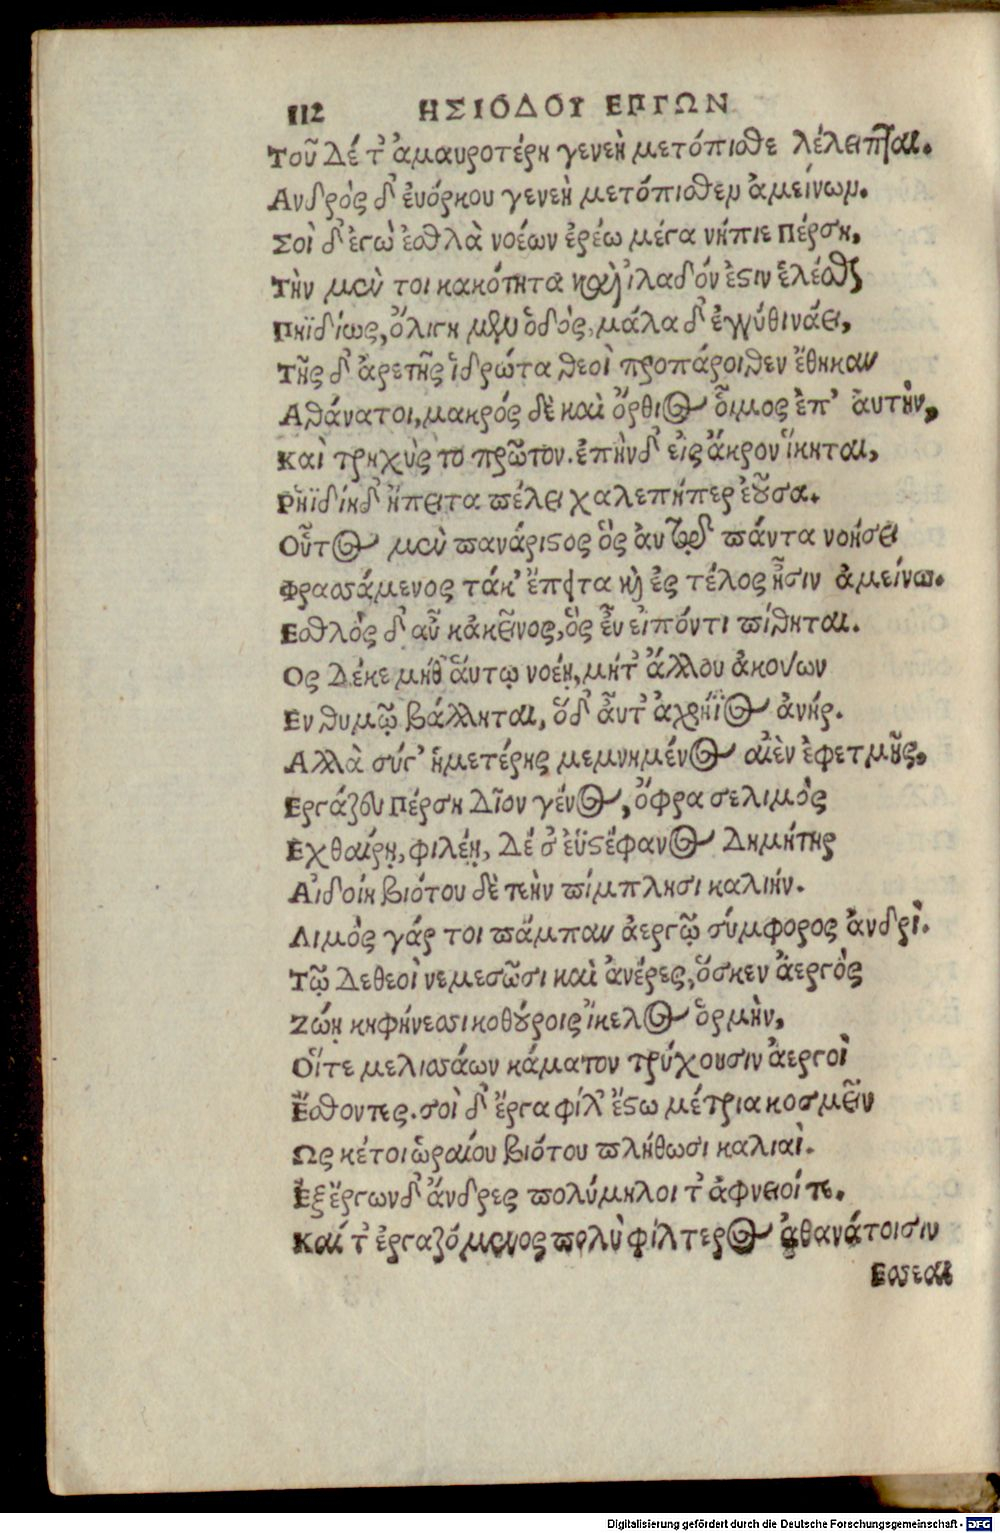 112 ΗΣΙΟΔΟΥ ΕΡΓΩΝ
Τοῦ δέ τ' ἀμαυροτέρη γενεὴ μετόπισθε λέλειπται.
Ανδρὸς δ' ἐυόρκου γενεὴ μετόπισθεν ἀμείνων.
Σοὶ δ' ἐγὼ ἐσθλὰ νοέων ἐρέω μέγα νήπιε Πέρση,
Τὴν μὲν τοι κακότητα καὶ ἰλαδόν ἐστιν ἑλέσθαι
Ρηϊδίως, ὄλιγη μὲν ὁδὸς, μάλα δ' ἐγγύθι ναίει,
Τῆς δ' ἀρετῆς ἱδρῶτα θεοὶ προπάροιθεν ἔθηκαν
Αθάνατοι, μακρός δὲ καὶ ὄρθιος οἶμος ἐπ' ἀυτὴν,
Καὶ τρηχὺς τὸ πρῶτον. ἐπὴν δ' εἰς ἄκρον ἵκηται,
Ρηϊδίη δ' ἤπειτα πέλει χαλεπήπερ ἐοῦσα.
Οὗτος μὲν πανάριστος ὃς ἀυτῷ πάντα νοήσει
Φρασσάμενος τάκ' ἔπειτα καὶ ἐς τέλος ᾖσιν ἀμείνω.
Εσθλὸς δ' αὖ κἀκεῖνος, ὃς εὖ εἰπόντι πίθηται.
Ος δέκε μήθ' ἁύτῳ νοέῃ, μήτ' ἄλλου ἀκούων
Εν θυμῷ βάλληται, ὅδ' ἆυτ' ἀχρήϊος ἀνήρ.
Αλλὰ σύγ' ἡμετέρης μεμνημένος αἰὲν ἐφετμῆς,
Εργάζευ Πέρση δῖον γένος, ὄφρα σε λιμὸς
Εχθαίρῃ, φιλέῃ, δέ σ' ἐϋστέφανος Δημήτηρ
Αἰδοίη βιότου δὲ τεὴν πίμπλησι καλιήν.
Λιμὸς γάρ τοι πάμπαν ἀεργῷ σύμφορος ἀνδρὶ.
Τῷ δε θεοὶ νεμεσῶσι καὶ ἀνέρες, ὅσκεν ἀεργὸς
Ζώῃ κηφήνεσσι κοθούροις ἴκελος ὁρμὴν,
Οἵτε μελισσάων κάματον τρύχουσιν ἀεργοὶ
Ἔσθοντες. σοὶ δ' ἔργα φίλ' ἔστω μέτρια κοσμεῖν
Ως κέτοι ὡραίου βιότου πλήθωσι καλιαὶ.
Ἐξ ἔργων δ' ἄνδρες πολύμηλοι τ' ἀφνειοί τε.
Καί τ' ἐργαζόμενος πολὺ φίλτερος ἀθανάτοισιν
Εσσεαι
Digitalisierung gefördert durch die Deutsche Forschungsgemeinschaft - DFG